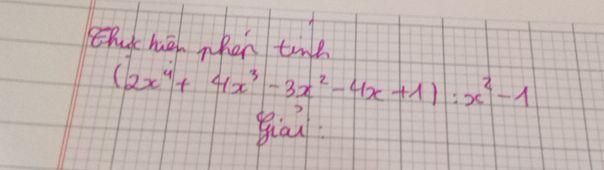 Thực hiện phép tính
(2x⁴ + 4x³ - 3x² - 4x + 1) : x² - 1
Giải :